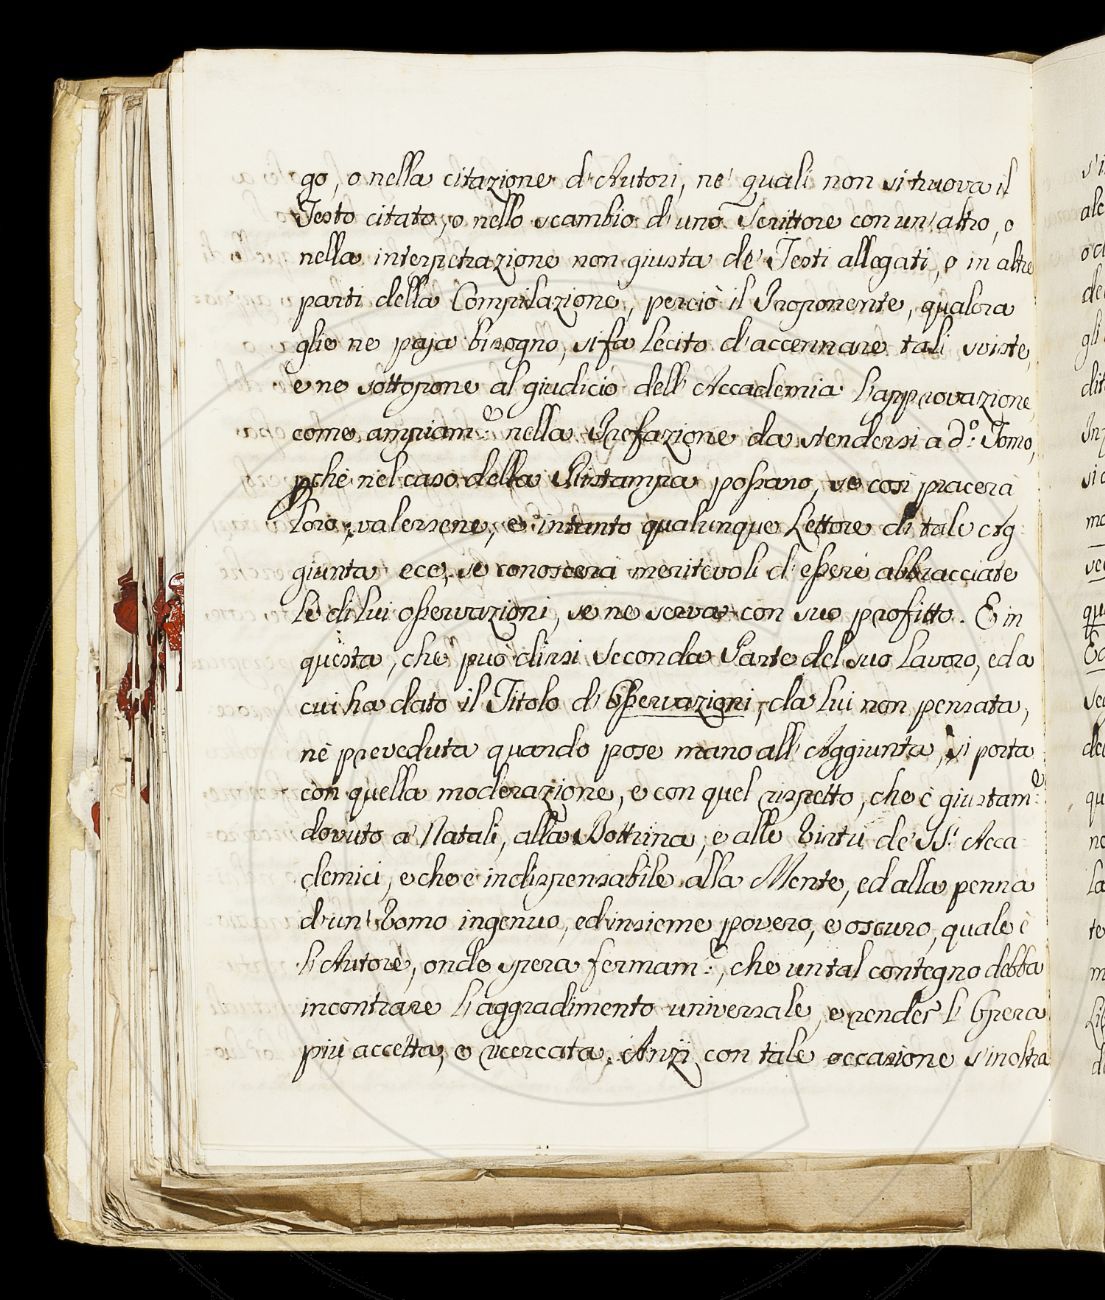 go, o nella citazione d'Autori, ne' quali non si truova il
Testo citato, o nello scambio d'uno Scrittore con un'altro, o
nella interpetrazione non giusta de' Testi allegati, o in altre
parti della Compilazione, perciò il Proponente, qualora
glie ne paja bisogno, si fa lecito d'accennare tali sviste,
e ne sottopone al giudicio dell'Accademia l'approvazione,
come ampiam.e nella Prefazione da stendersi a d.o Tomo,
pchè nel caso della Ristampa possano, se così piacerà
loro, valersene, e intanto qualunque Lettore di tale Ag-
giunta ecc. se conoscerà meritevoli d'essere abbracciate
le di lui osservazioni, se ne serva con suo profitto. E in
questa, che può dirsi seconda Parte del suo lavoro, ed a
cui ha dato il Titolo d'Osservazioni, da lui non pensata,
nè preveduta quando pose mano all'Aggiunta, si porta
con quella moderazione, e con quel rispetto, che è giustam.e
dovuto a' Natali, alla Dottrina, e alle Virtù de' SS.i Acca-
demici, e che è indispensabile alla Mente, ed alla penna
d'un'Uomo ingenuo, ed insieme povero, e oscuro, quale è
l'Autore, onde spera fermam.e, che un tal contegno debba
incontrare l'aggradimento universale, e render l'Opera
più accetta, e ricercata. Anzi con tale occasione s'inoltra